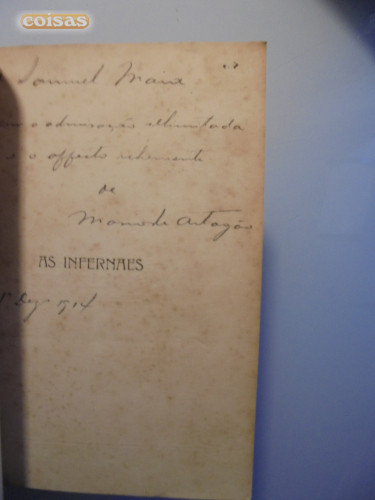 coisas
Samuel Maia
admiração illimitada
e o affecto vehemente
de
Mario de Artagão
AS INFERNAES
1914